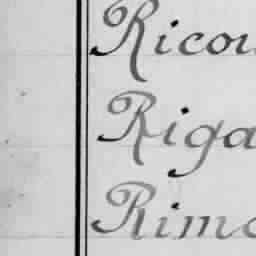 Ricou
Riga
Rimo